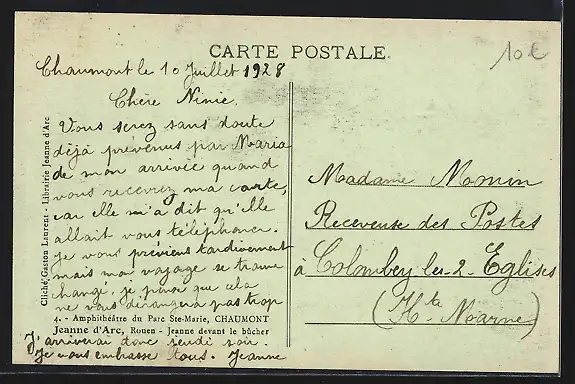 CARTE POSTALE.
10€
Chaumont le 10 Juillet 1928
Chère Ninie,
Vous serez sans doute
déjà prévenus par Maria
de mon arrivée quand
vous recevrez ma carte,
car elle m'a dit qu'elle
allait vous téléphoner.
Je vous préviens tardivement
mais mon voyage se trouve
changé, je pense que cela
ne vous dérangera pas trop
4. - Amphithéâtre du Parc Ste-Marie, CHAUMONT
Jeanne d'Arc, Rouen - Jeanne devant le bûcher
J'arriverai donc jeudi soir.
Je vous embrasse tous. Jeanne
Cliché Gaston Laurent - Librairie Jeanne d'Arc
Madame Monin
Receveuse des Postes
à Colombey les-2-Eglises
(Hte Marne)